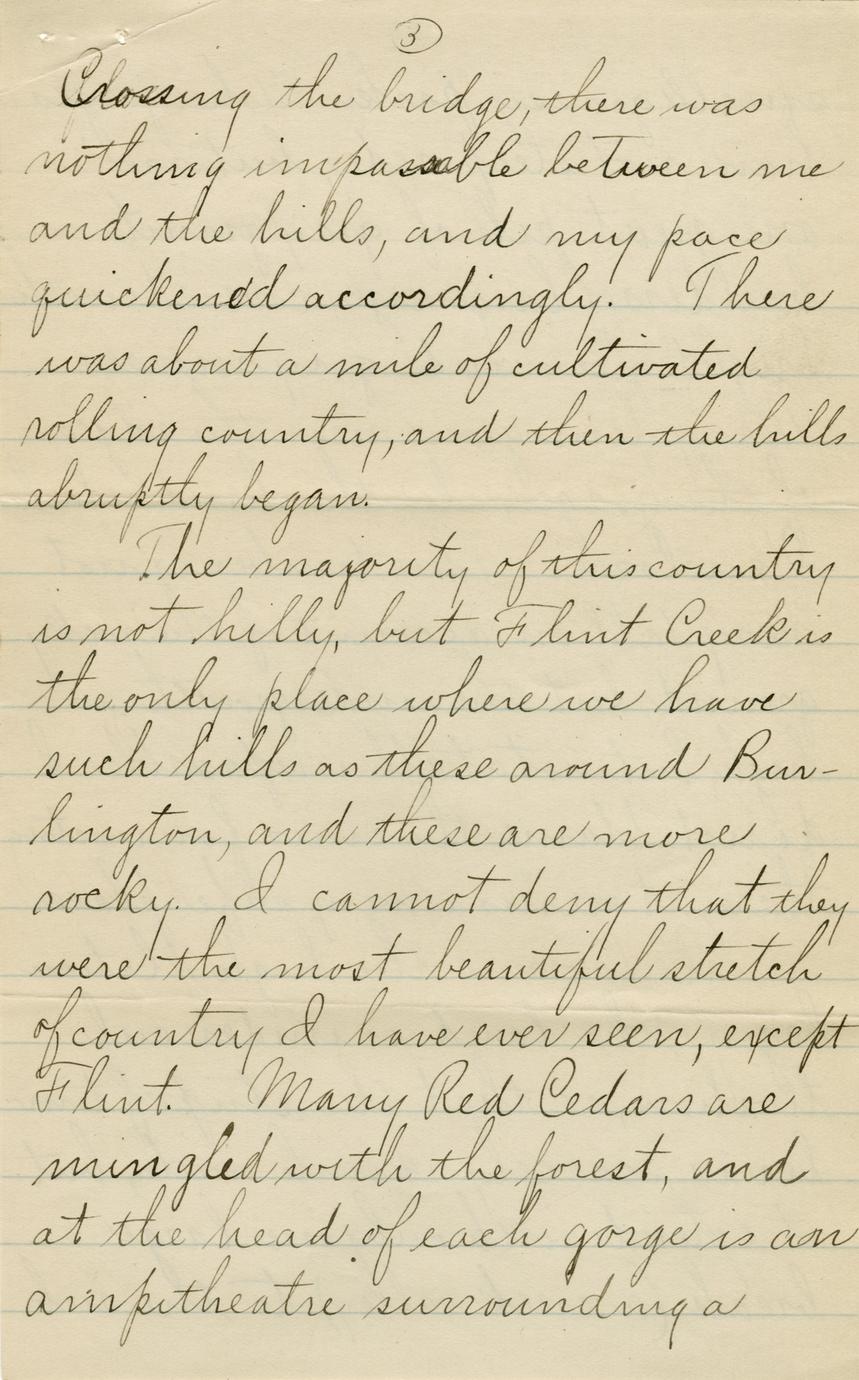 3
Crossing the bridge, there was
nothing impassable between me
and the hills, and my pace
quickened accordingly. There
was about a mile of cultivated
rolling country, and then the hills
abruptly began.
The majority of this country
is not hilly, but Flint Creek is
the only place where we have
such hills as these around Bur-
lington, and these are more
rocky. I cannot deny that they
were the most beautiful stretch
of country I have ever seen, except
Flint. Many Red Cedars are
mingled with the forest, and
at the head of each gorge is an
ampitheatre surrounding a